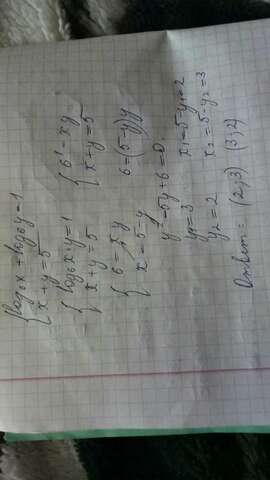 { log₆x + log₆y = 1
{ x + y = 5
{ log₆xy = 1
{ x + y = 5
{ 6 = x·y
{ x = 5 - y
{ 6¹ = xy
{ x + y = 5
6 = (5 - y)y
y² - 5y + 6 = 0
y₁ = 3
y₂ = 2
x₁ = 5 - y₁ = 2
x₂ = 5 - y₂ = 3
Ответ: (2; 3) (3; 2)